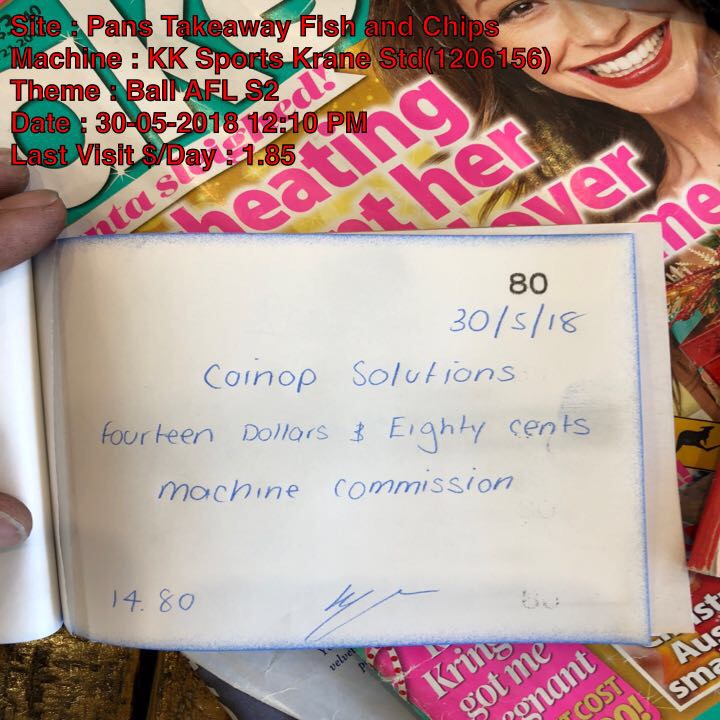 Site : Pans Takeaway Fish and Chips
Machine : KK Sports Krane Std(1206156)
Theme : Ball AFL S2
Date : 30-05-2018 12:10 PM
Last Visit $/Day : 1.85
nta sleighed!
heating
her
me
80
30/5/18
Coinop Solutions
fourteen Dollars & Eighty cents
machine commission
14.80
Kring
got me
gnant
COST